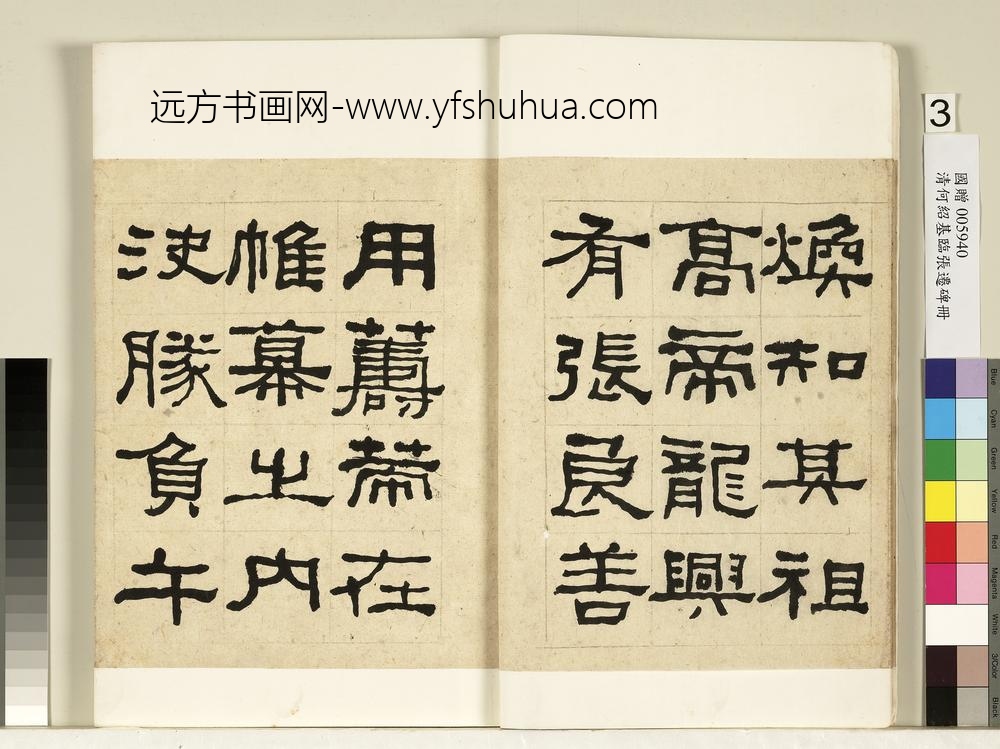 远方书画网-www.yfshuhua.com
煥知其祖
髙帝龍興
有張良善
用籌策在
帷幕之內
決勝負千
3
國贈 005940
清何紹基臨張遷碑冊
Blue
Cyan
Green
Yellow
Red
Magenta
White
3/Color
Black